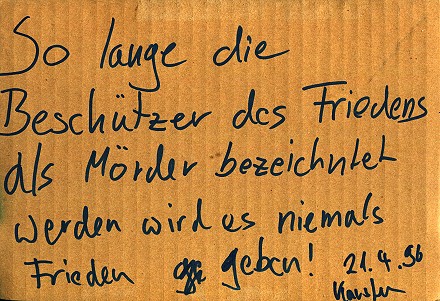 So lange die
Beschützer des Friedens
als Mörder bezeichntet
werden wird es niemals
Frieden geben! 21.4.96